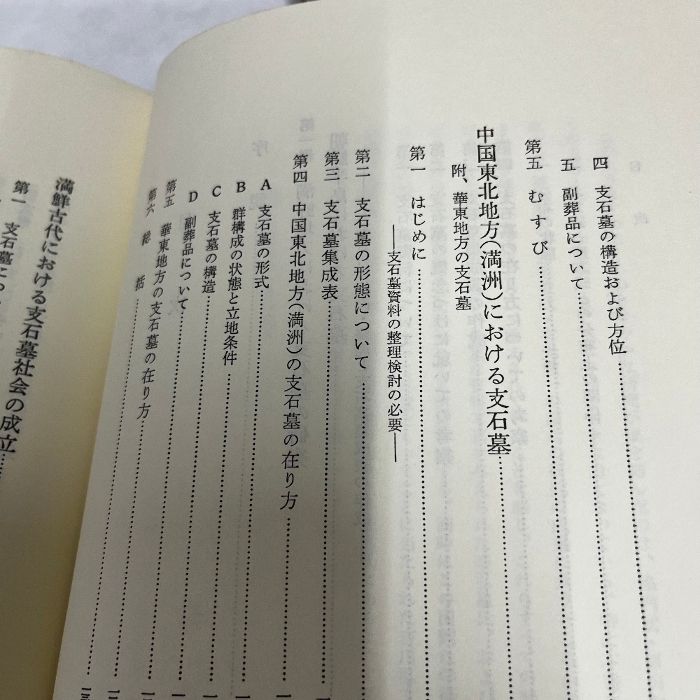 四　支石墓の構造および方位
五　副葬品について
第五　むすび
中国東北地方(満洲)における支石墓
附、華東地方の支石墓
第一　はじめに
――支石墓資料の整理検討の必要――
第二　支石墓の形態について
第三　支石墓集成表
第四　中国東北地方(満洲)の支石墓の在り方
A　支石墓の形式
B　群構成の状態と立地条件
C　支石墓の構造
D　副葬品について
第五　華東地方の支石墓の在り方
第六　総　括
満鮮古代における支石墓社会の成立
第一　支石墓につ